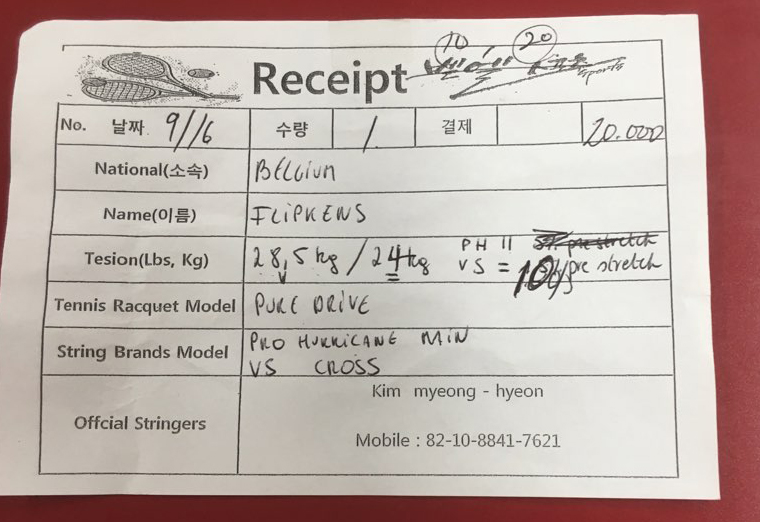 10 20
Receipt
sports
No. 날짜 9/16 수량 1 결제 20.000
National(소속) BELGIUM
Name(이름) FLIPKENS
Tesion(Lbs, Kg) 28,5 kg / 24 kg PH || pre stretch
VS = 10% pre stretch
Tennis Racquet Model PURE DRIVE
String Brands Model PRO HURRICANE MIN
VS CROSS
Offcial Stringers Kim myeong - hyeon
Mobile : 82-10-8841-7621